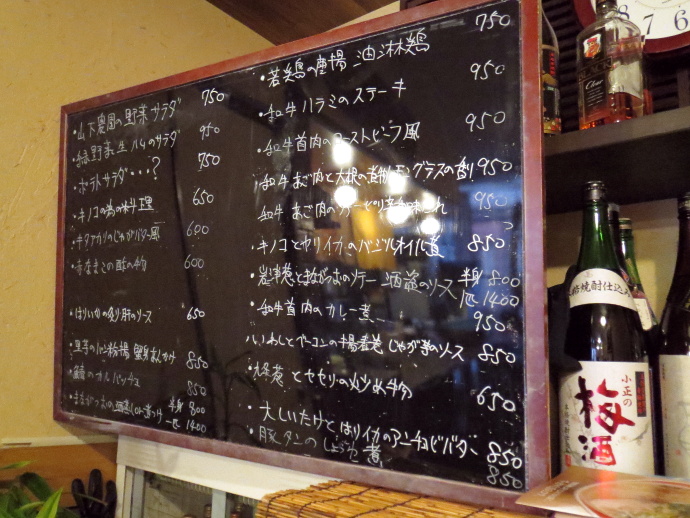 ・山下農園の野菜サラダ 750
・緑野菜生ハムのサラダ 950
・ポテトサラダ・・・? 750
・キノコの 料理 650
・キタアカリのじゃがバター風 600
・赤なまこの酢の物 600
・はりいかの炙り肝のソース 650
揚 あんかけ 850
のカルパッチョ 850
・まながつおの 半身 800
一匹 1400
・若鶏の唐揚 油淋鶏 750
・和牛ハラミのステーキ 950
・和牛首肉のローストビーフ風 950
・和牛あご肉と大根の煮物レモングラスの香り 950
和牛あご肉の 950
・キノコとヤリイカのバジルオイル煮 850
岩津葱とまながつおのソテー 酒盗のソース 半身 800
一匹 1400
・和牛首肉のカレー煮 950
いわしとベーコンの 揚 じゃが芋のソース 850
・ 葱とセセリの炒め物 650
・大しいたけとはりイカのアンチョビバター 850
・豚タンのしょうゆ煮 850
本格焼酎仕込み
小正の
梅酒
7 8 6